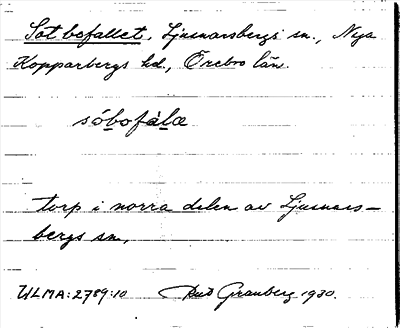 Sotbefallet, Ljusnarsbergs sn., Nya
Kopparbergs hd., Örebro län.
sóbofàlæ
torp i norra delen av Ljusnars-
bergs sn.,
ULMA:2789:10 Granberg 1930.